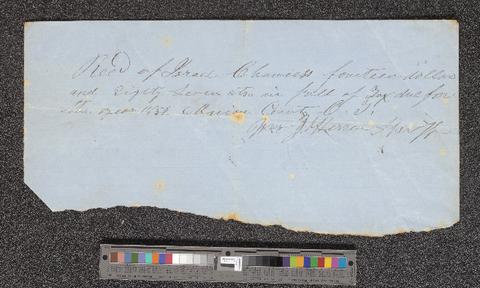 Recd of Israel Chamess fourteen dollars
and Eighty Seven cts in full of Tax due for
the year 1851 County O. T.
Sheriff